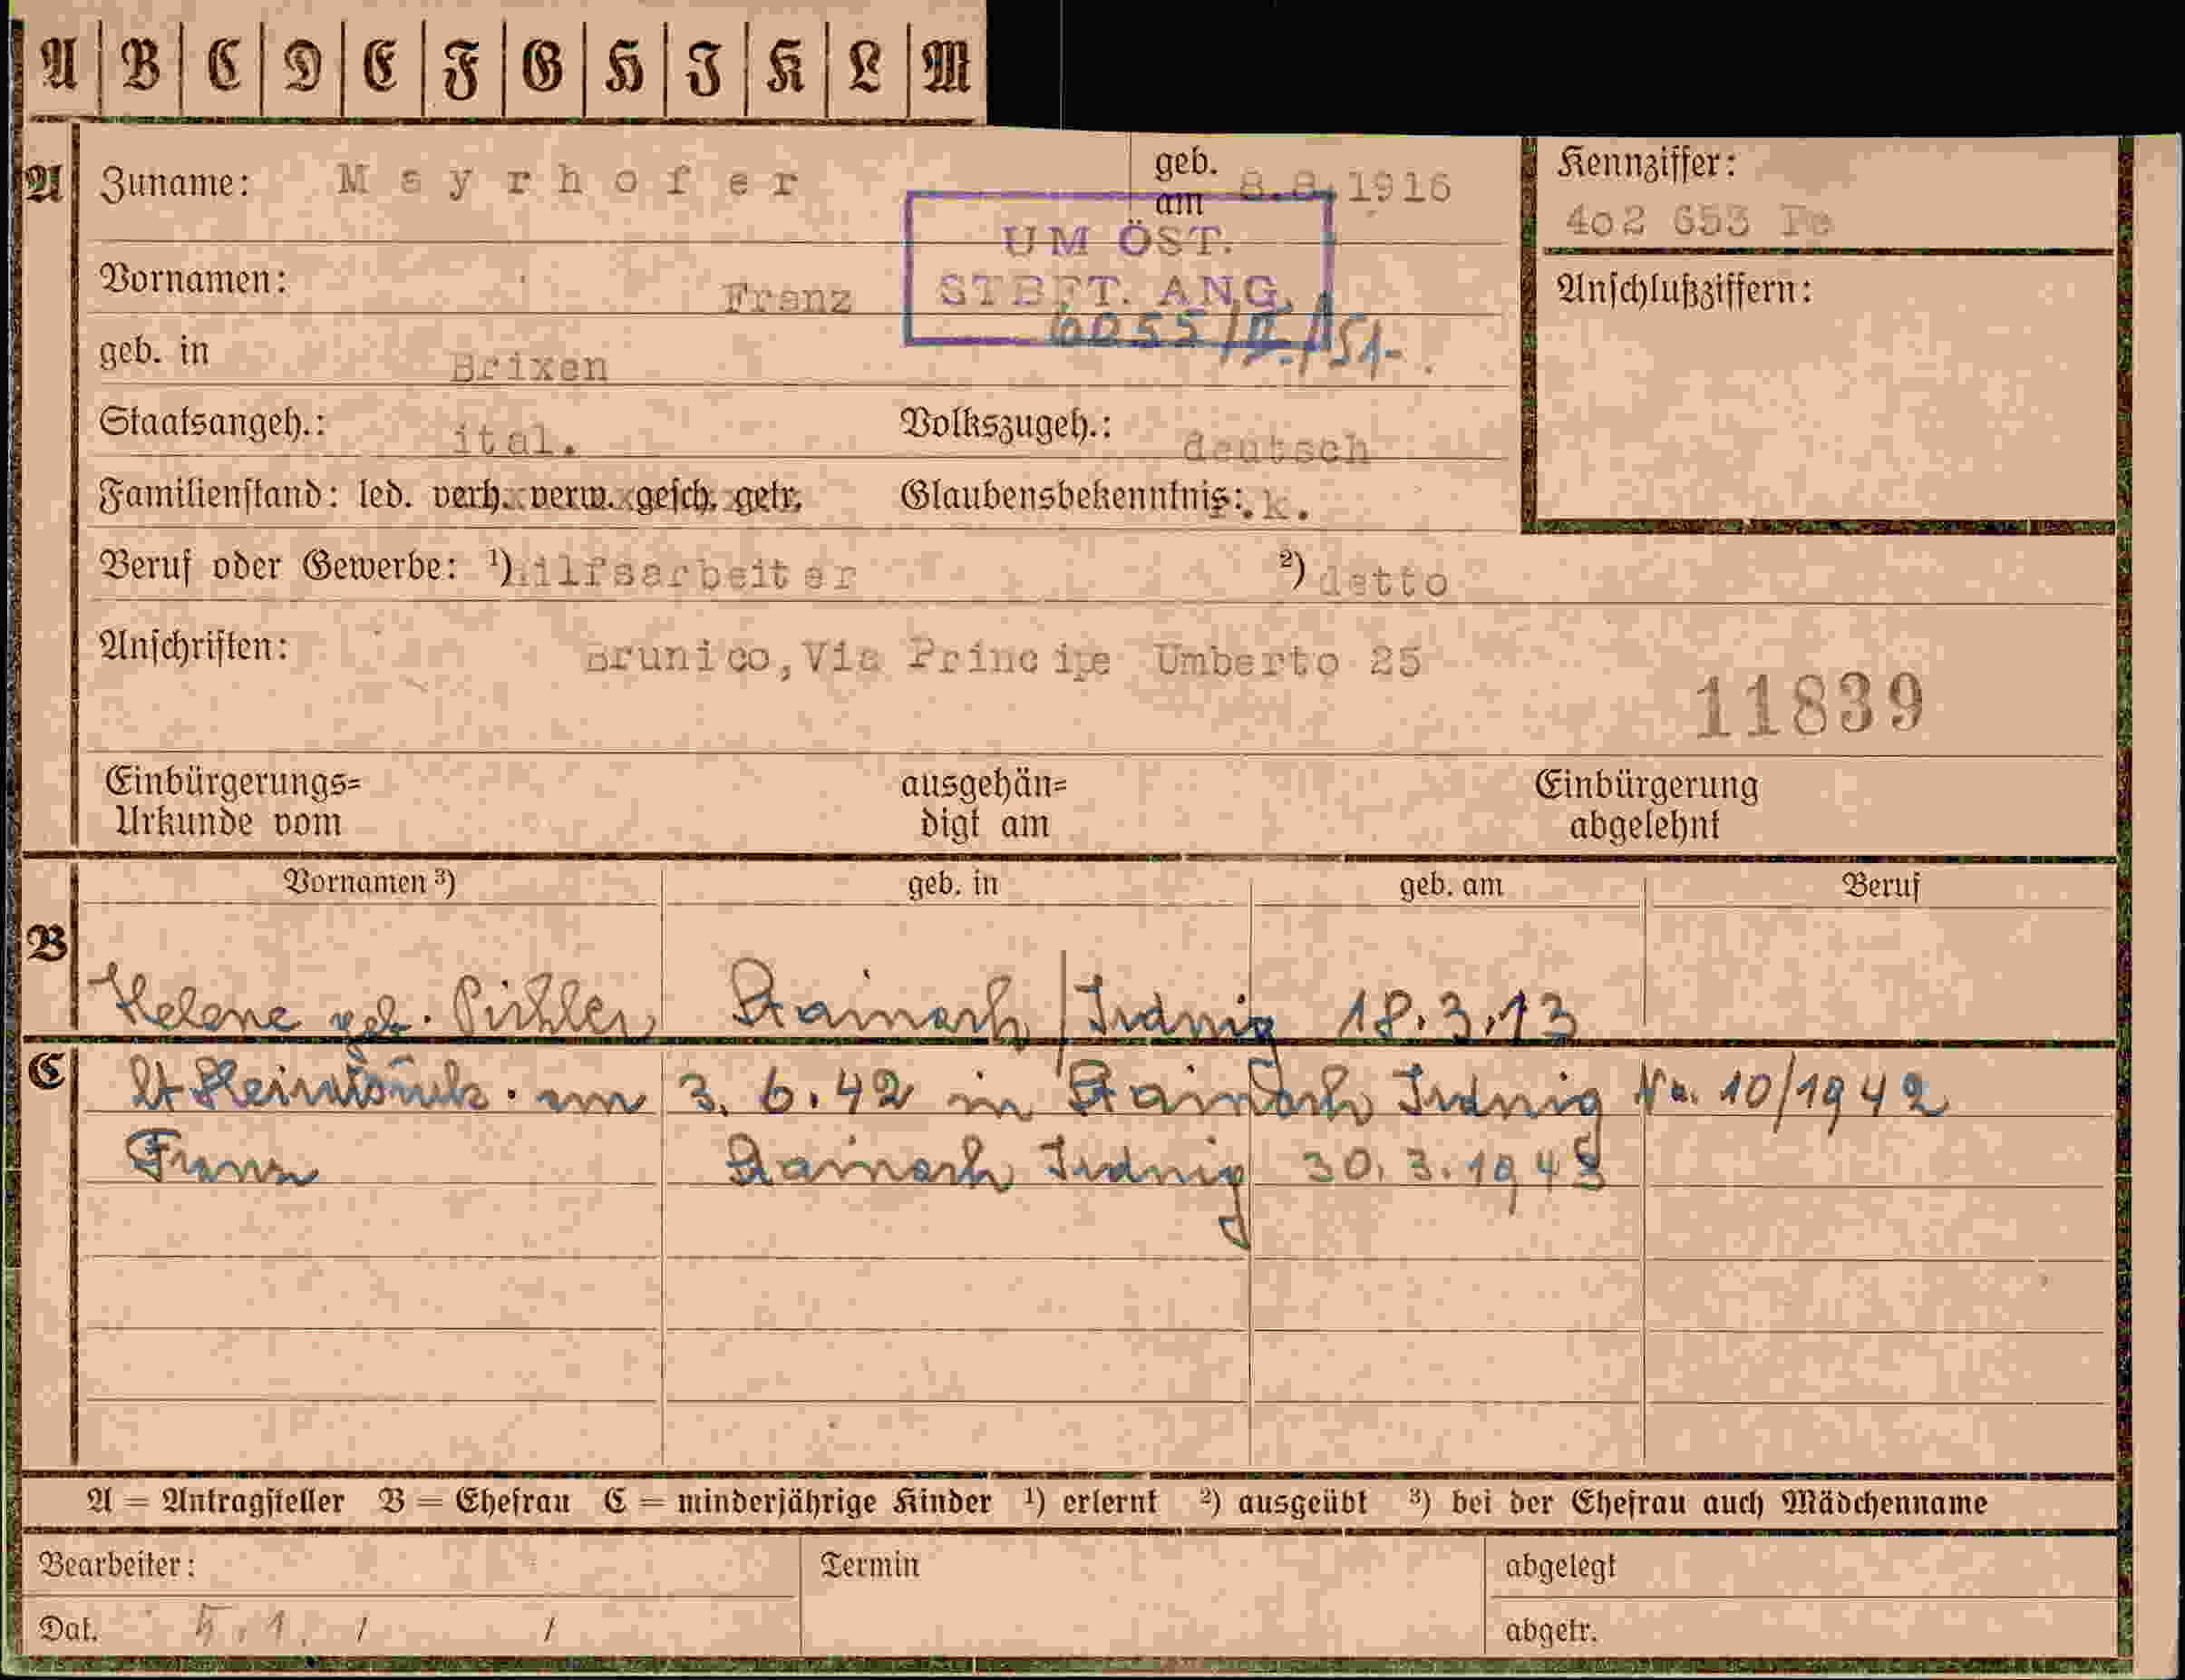 A B C D E F G H I K L M
A Zuname: Mayrhofer geb. am 8.8.1916
Kennziffer:
402 653 Pe
UM ÖST.
STBFT. ANG.
6055/II./51-.
Vornamen: Franz
Anschlußziffern:
geb. in Brixen
Staatsangeh.: ital. Volkszugeh.: deutsch
Familienstand: led. verh. verw. gesch. getr. Glaubensbekenntnis: r.k.
Beruf oder Gewerbe: ¹) Hilfsarbeiter ²) detto
Anschriften: Brunico, Via Principe Umberto 25
11839
Einbürgerungs=
Urkunde vom
ausgehän=
digt am
Einbürgerung
abgelehnt
Vornamen ³) geb. in geb. am Beruf
B
Helene geb. Pichler Stainach/Irdnig 18.3.13
C
lt am 3.6.42 in Stainach Irdnig No. 10/1942
Franz Stainach Irdnig 30.3.1943
A = Antragsteller B = Ehefrau C = minderjährige Kinder ¹) erlernt ²) ausgeübt ³) bei der Ehefrau auch Mädchenname
Bearbeiter: Termin abgelegt
Dat. 5.1. / / abgetr.